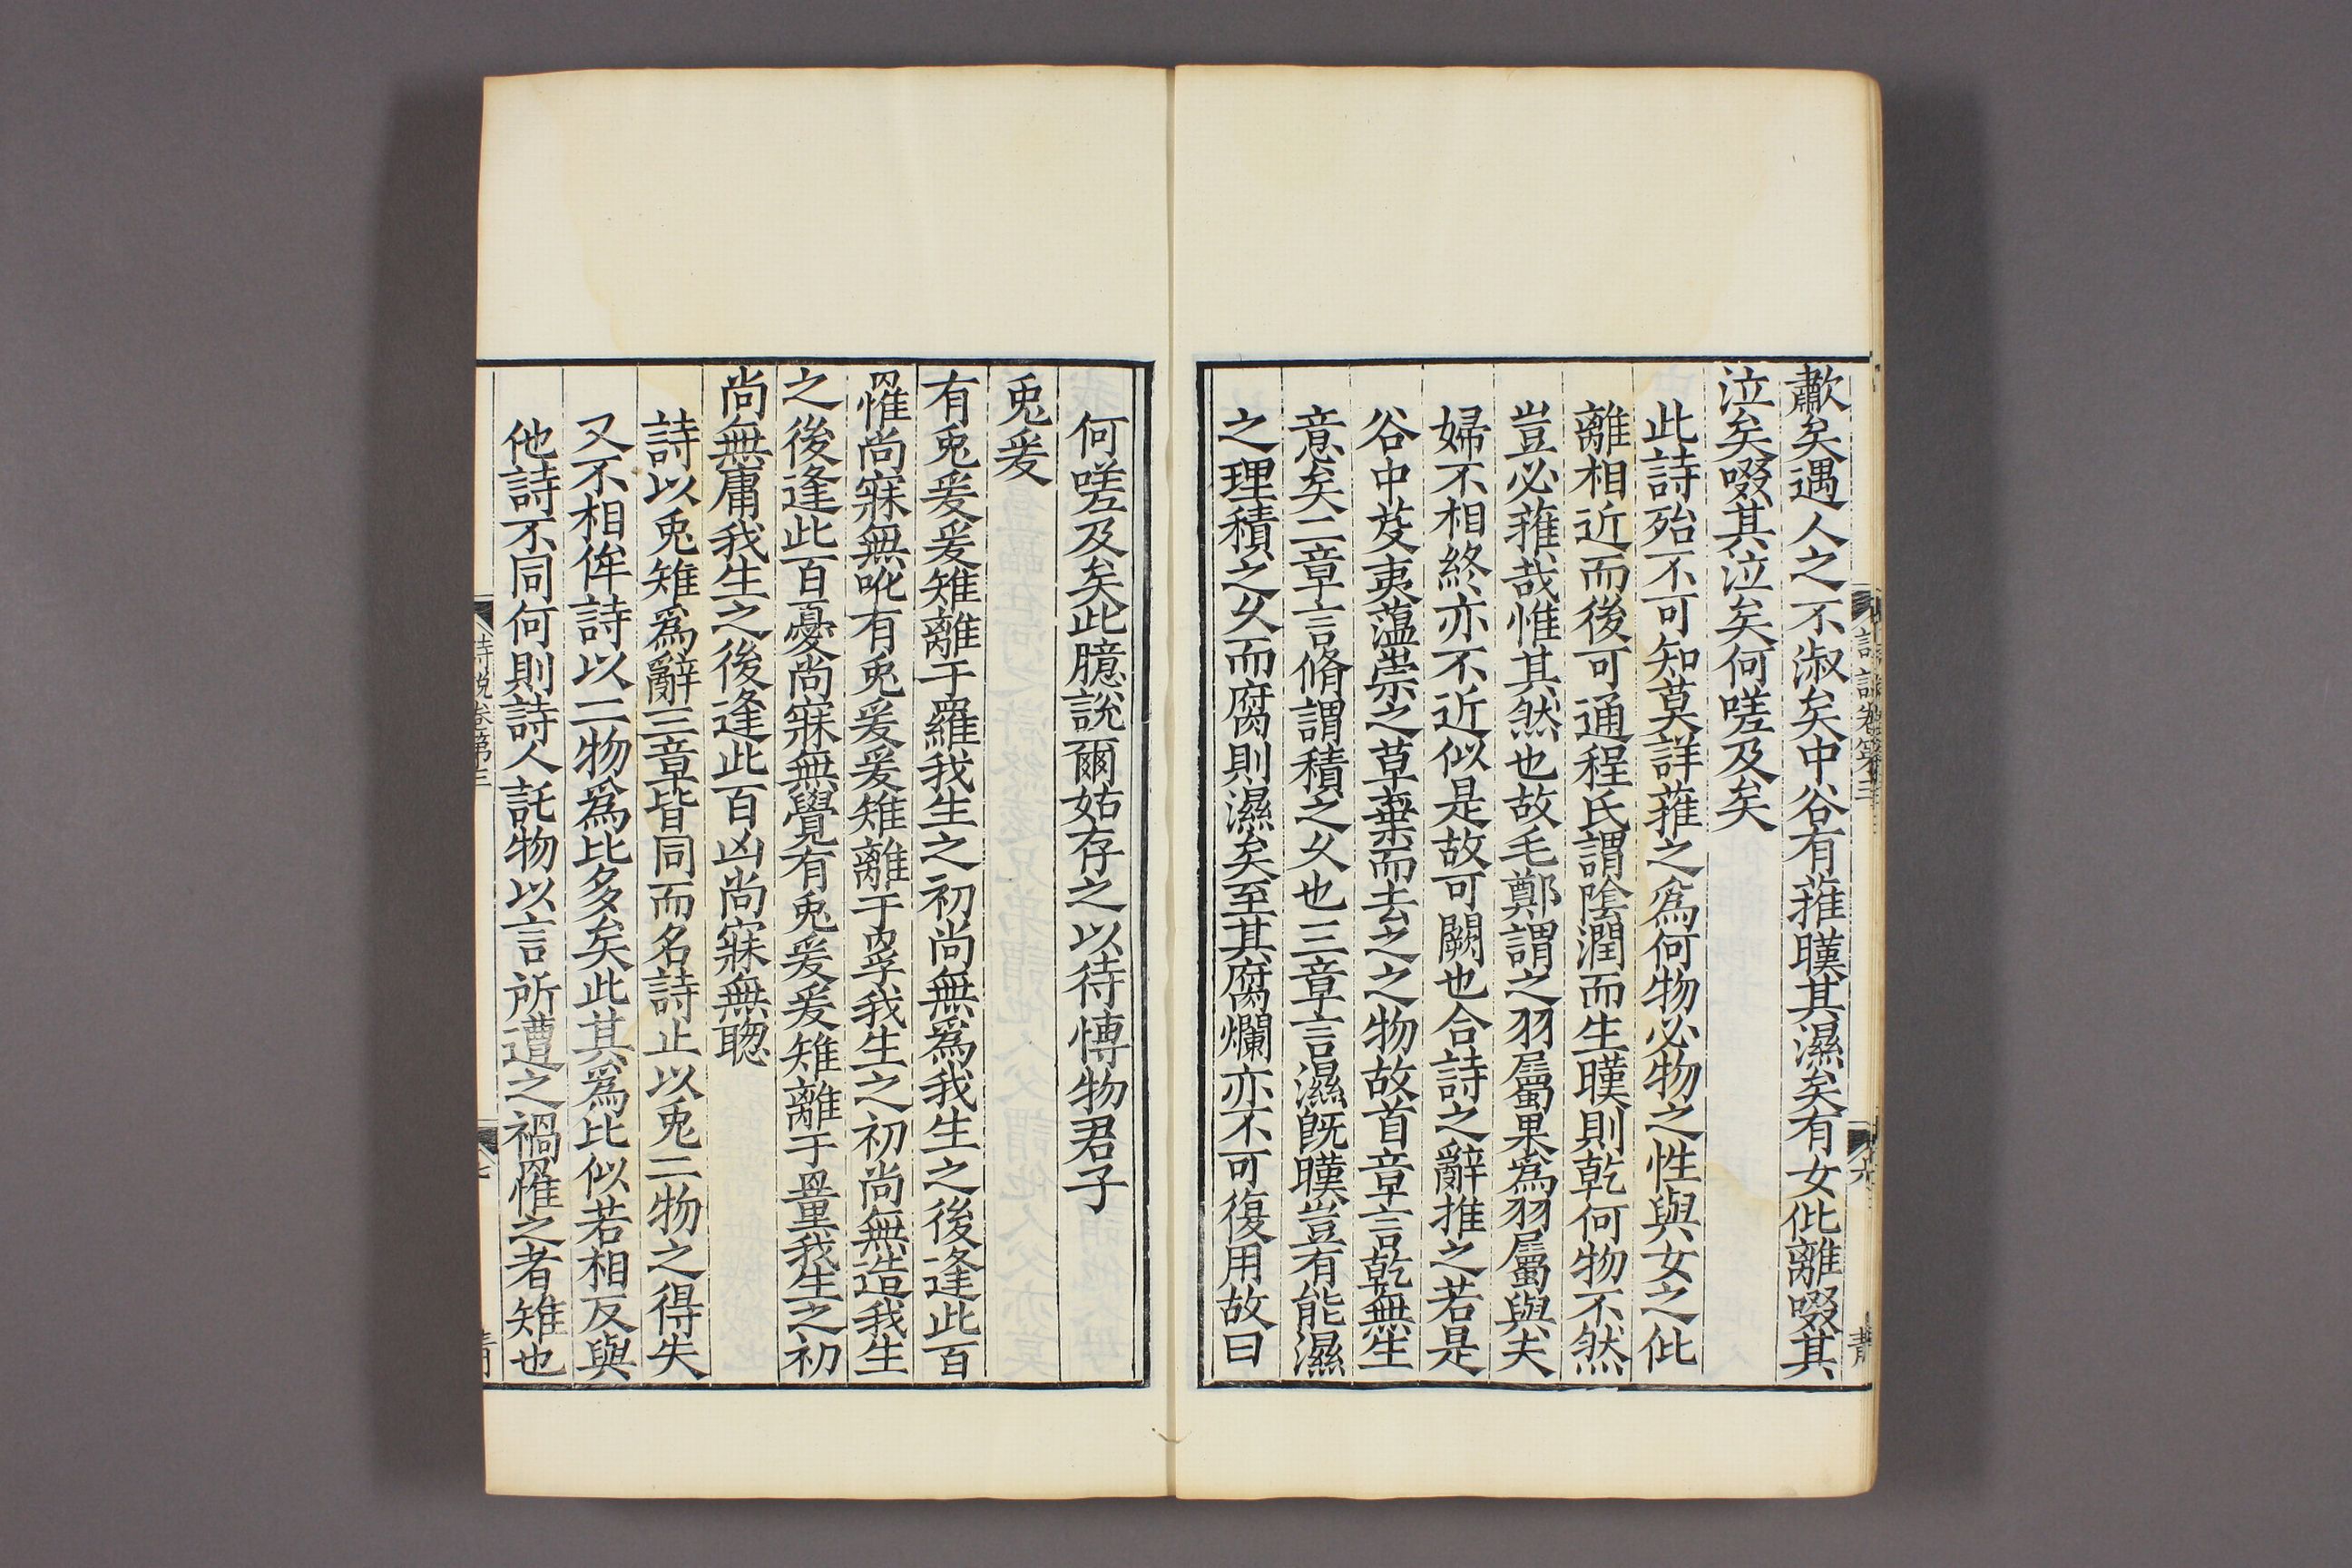 歗矣遇人之不淑矣中谷有蓷暵其濕矣有女仳離啜其
泣矣啜其泣矣何嗟及矣
此詩殆不可知莫詳蓷之爲何物必物之性與女之仳
離相近而後可通程氏謂陰潤而生暵則乾何物不然
豈必蓷哉惟其然也故毛鄭謂之羽屬果爲羽屬與夫
婦不相終亦不近似是故可闕也合詩之辭推之若是
谷中芟夷薀崇之草棄而去之之物故首章言乾無生
意矣二章言脩謂積之久也三章言濕旣暵豈有能濕
之理積之久而腐則濕矣至其腐爛亦不可復用故曰
何嗟及矣此臆說爾姑存之以待博物君子
兎爰
有兎爰爰雉離于羅我生之初尚無爲我生之後逢此百
罹尚寐無吪有兎爰爰雉離于罦我生之初尚無造我生
之後逢此百憂尚寐無覺有兎爰爰雉離于罿我生之初
尚無庸我生之後逢此百凶尚寐無聦
詩以兎雉爲辭三章皆同而名詩止以兎二物之得失
又不相侔詩以二物爲比多矣此其爲比似若相反與
他詩不同何則詩人託物以言所遭之禍罹之者雉也
詩說卷第三
七